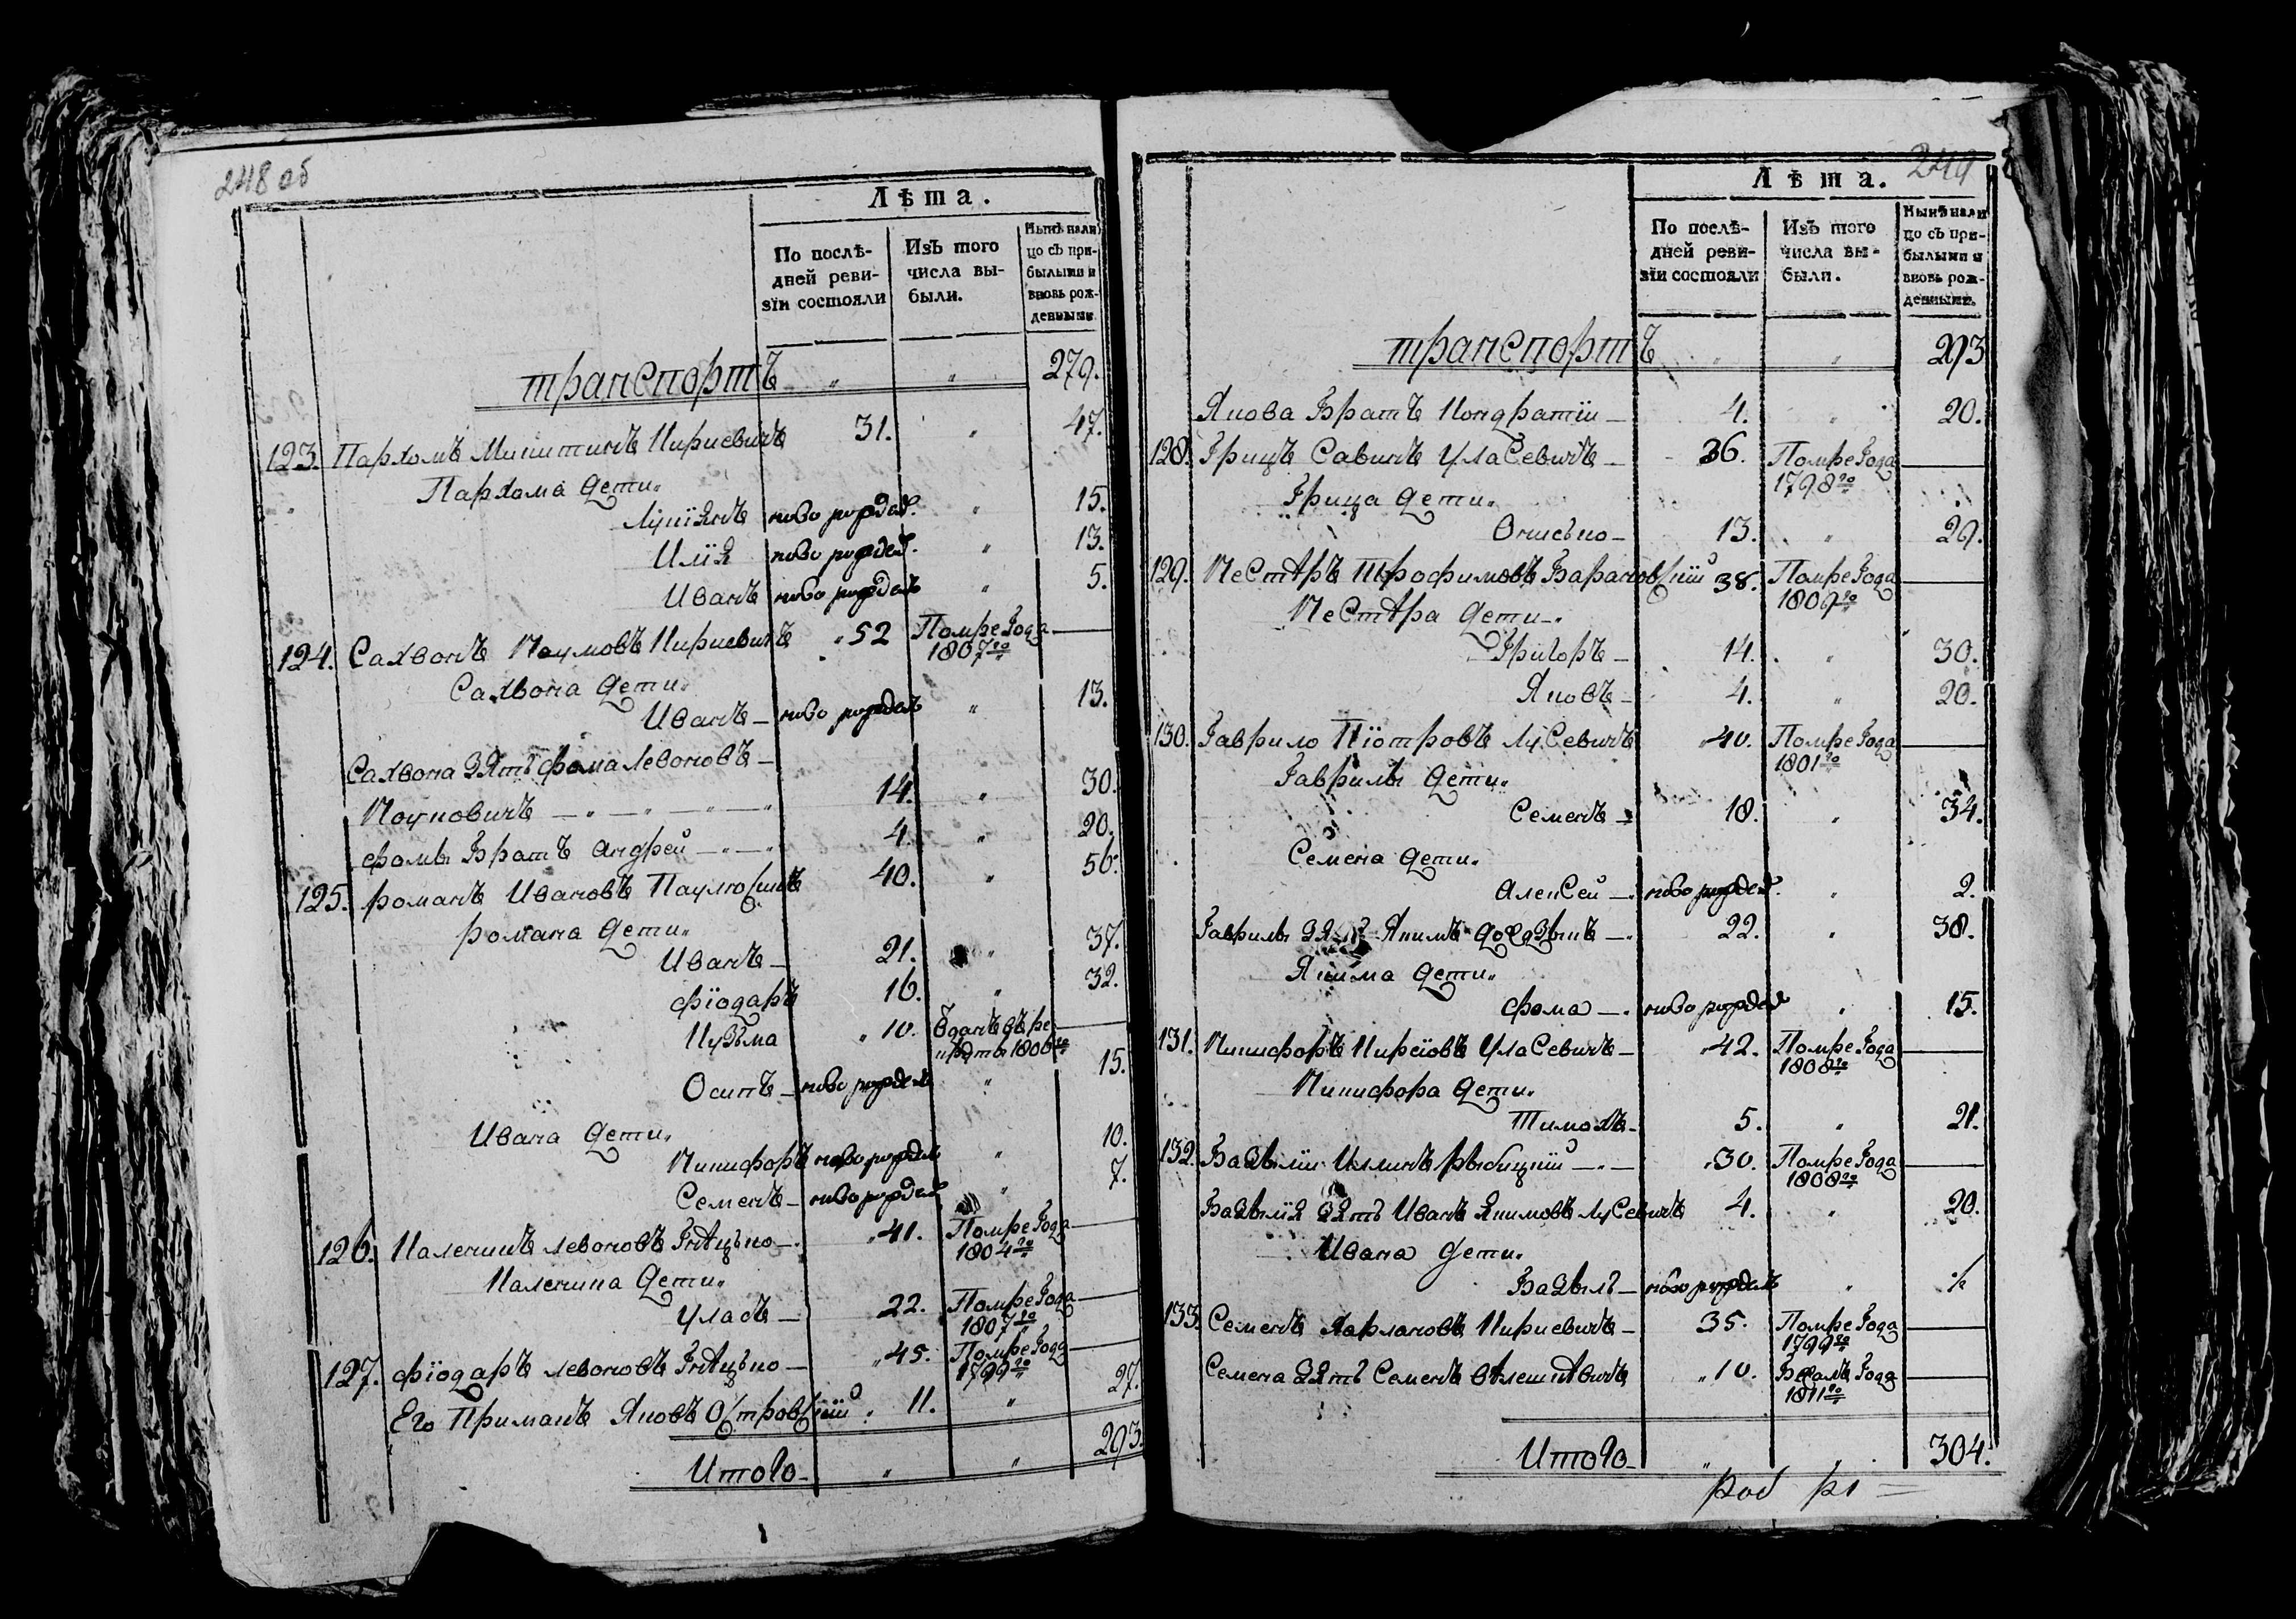 248 об
Лѣта.
По послѣ-
дней реви-
зіи состояли
Изъ того
числа вы-
были.
Нынѣ нали
цо съ при-
былыми и
вновь рож-
денными
транспортъ " " 279.
123. Пархомъ Микитинъ Киркевичъ 31. " 47.
Пархома дети.
Лукіянъ ново рожден. " 15.
Илія ново рожден. " 13.
Иванъ ново рожденъ " 5.
124. Сахвонъ Наумовъ Киркевичъ 52 Помре Года
1807го
Сахвона дети.
Иванъ ново рожденъ " 13.
Сахвона зять фома Левоновъ
Науковичъ 14. " 30.
фомы братъ андрей 4. " 20.
125. романъ Ивановъ 40. " 56.
романа дети.
Иванъ 21. " 37.
фіодаръ 16. " 32.
Кузьма 10. Одданъ
1806го
Осипъ ново рожденъ " 15.
Ивана дети.
Никифоръ ново рожденъ " 10.
Семенъ ново рожден " 7.
126. Каленикъ Левоновъ 41. Помре Года
1804го
Каленика дети.
Уласъ 22. Помре Года
1807го
127. фіодаръ Левоновъ 45. Помре Года
1799го
Его Приманъ Яковъ Островскій 11. " 27.
Итого " " 293.
249
Лѣта.
По послѣ-
дней реви-
зіи состояли
Изъ того
числа вы-
были.
Нынѣ нали
цо съ при-
былыми и
вновь рож-
денными.
транспортъ " " 293
Якова Братъ Кондратій 4. " 20.
128. Грицъ Савинъ Уласевичъ 36. Помре Года
1798го
Грица дети.
Онисько 13. " 29.
129. Нестѣръ Трофимовъ Барановскій 38. Помре Года
1809го
Нестѣра дети.
Григоръ 14. " 30.
Яковъ 4. " 20.
130. Гаврило Піотровъ Лусевичъ 40. Помре Года
1801го
Гаврилы дети.
Семенъ 18. " 34.
Семена дети.
Алексей ново рожден. " 2.
Гаврилы Якимъ 22. " 38.
Якима дети.
фома ново рожден " 15.
131. Никифоръ Кирѣіовъ Уласевичъ 42. Помре Года
1808го
Никифора дети.
Тимохъ 5. " 21.
132. Базылій Иллинъ рыбицкій 30. Помре Года
1808го
Базылія зять Иванъ Якимовъ Лусевичъ 4. " 20.
Ивана дети.
Базыль ново рожденъ "
133. Семенъ Харлановъ Киркевичъ 35. Помре Года
1799го
Семена зять Семенъ 10. Бежалъ Года
1811го
Итого " 304.